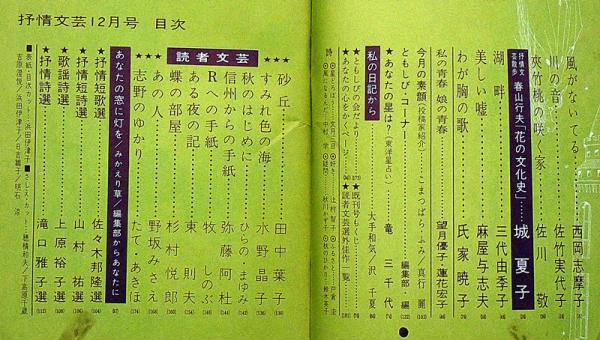 抒情文芸12月号 目次
風がないてる……西岡志摩子
川の音……佐竹実代子
夾竹桃の咲く家……佐川 敬
抒情文芸散歩 春山行夫「花の文化史」……城 夏子
湖畔……三代由季子
美しい嘘……麻屋与志夫
わが胸の歌……氏家暁子
私の青春 娘の青春……望月優子・蓮花宏子
今月の素顔(投稿家紹介)……こまつばら・ふみ/真行 麗
ともしび・コーナー……編集部 編
★あなたの星は?(東洋星占い)……竜 三千代
私の日記から……大手和気/沢 千夏
★ともしびの会だより
★あなたの心をかくページ
★既刊号もくじ
★読者文芸選外佳作一覧
読者文芸
★★★
砂丘……田中葉子
すみれ色の海……水野晶子
秋のはじめに……ひらの・まゆみ
信州からの手紙……弥藤阿杜
Rへの手紙……牧 しのぶ
ある夜の記……東 則夫
蝶の部屋……杉村悦郎
あの人……野坂みつえ
志野のゆかり……たて・あきほ
★★★
あなたの窓に灯を/みかえり草/編集部からあなたに
★抒情短歌選……佐々木邦隆選
★抒情短詩選……山村 祐選
★歌謡詩選……上原裕子選
★抒情詩選……滝口雅子選